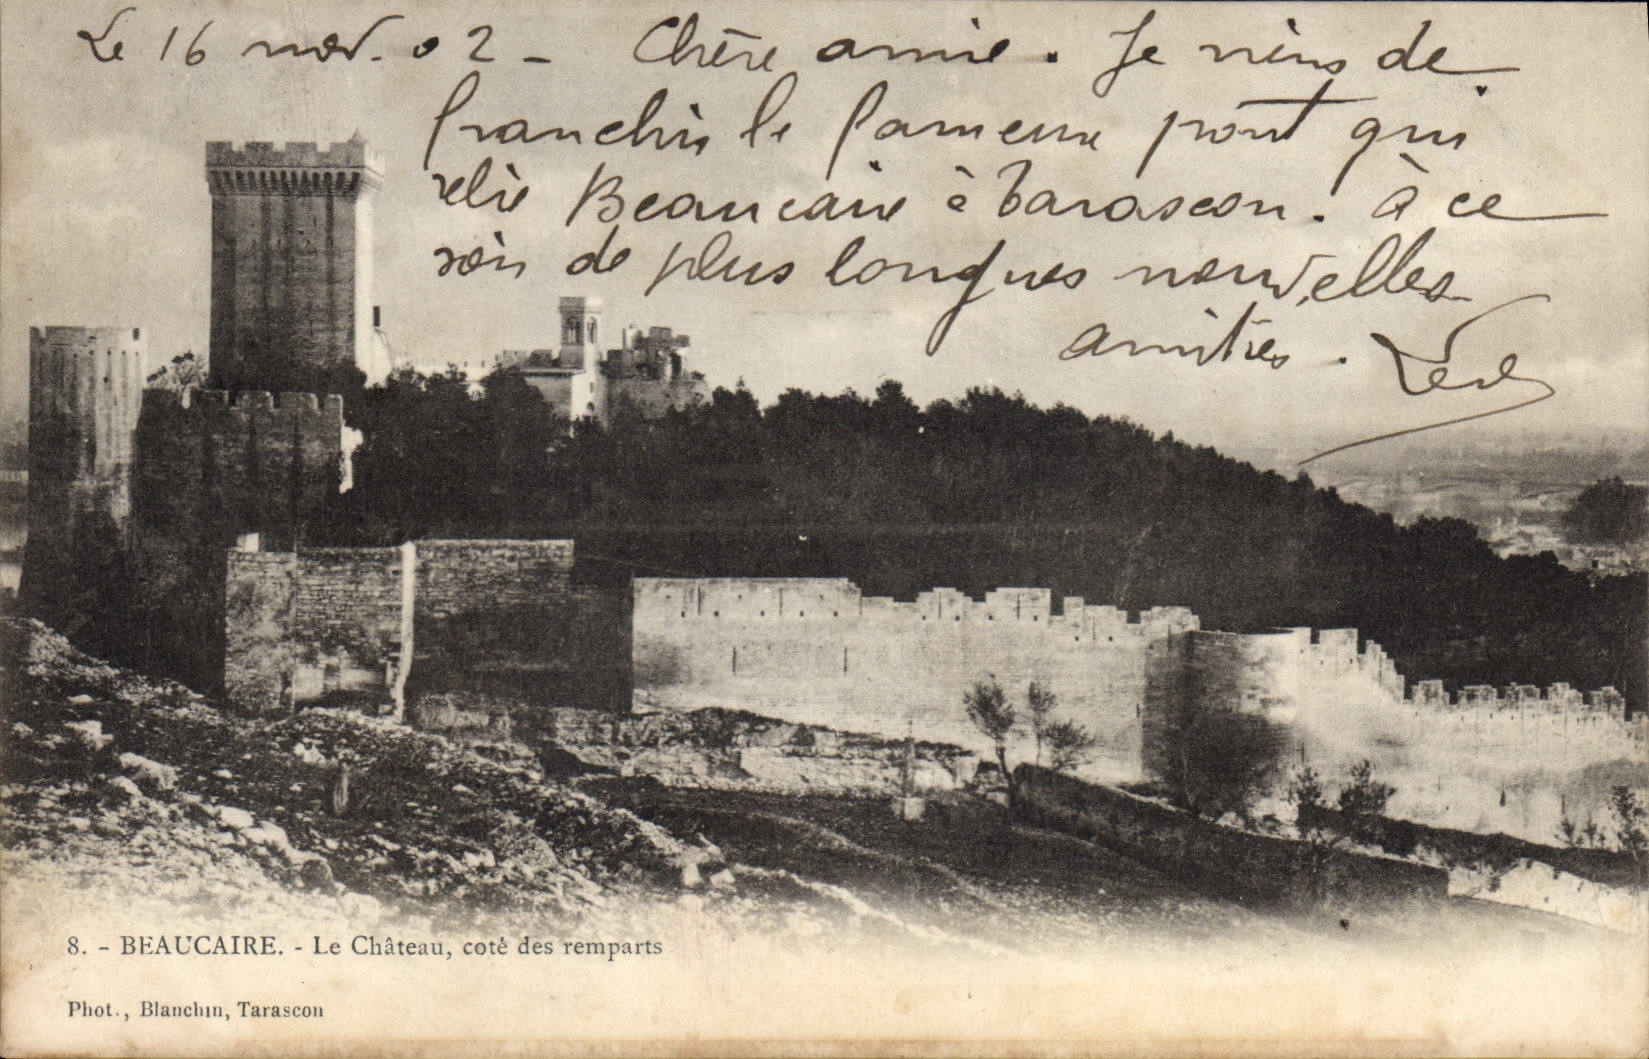 Le 16 nov. 02 - Chère amie. Je viens de
franchir le fameux pont qui
relie Beaucaire à Tarascon. à ce
soir de plus longues nouvelles
amitiés.
8. - BEAUCAIRE. - Le Château, coté des remparts
Phot., Blanchin, Tarascon